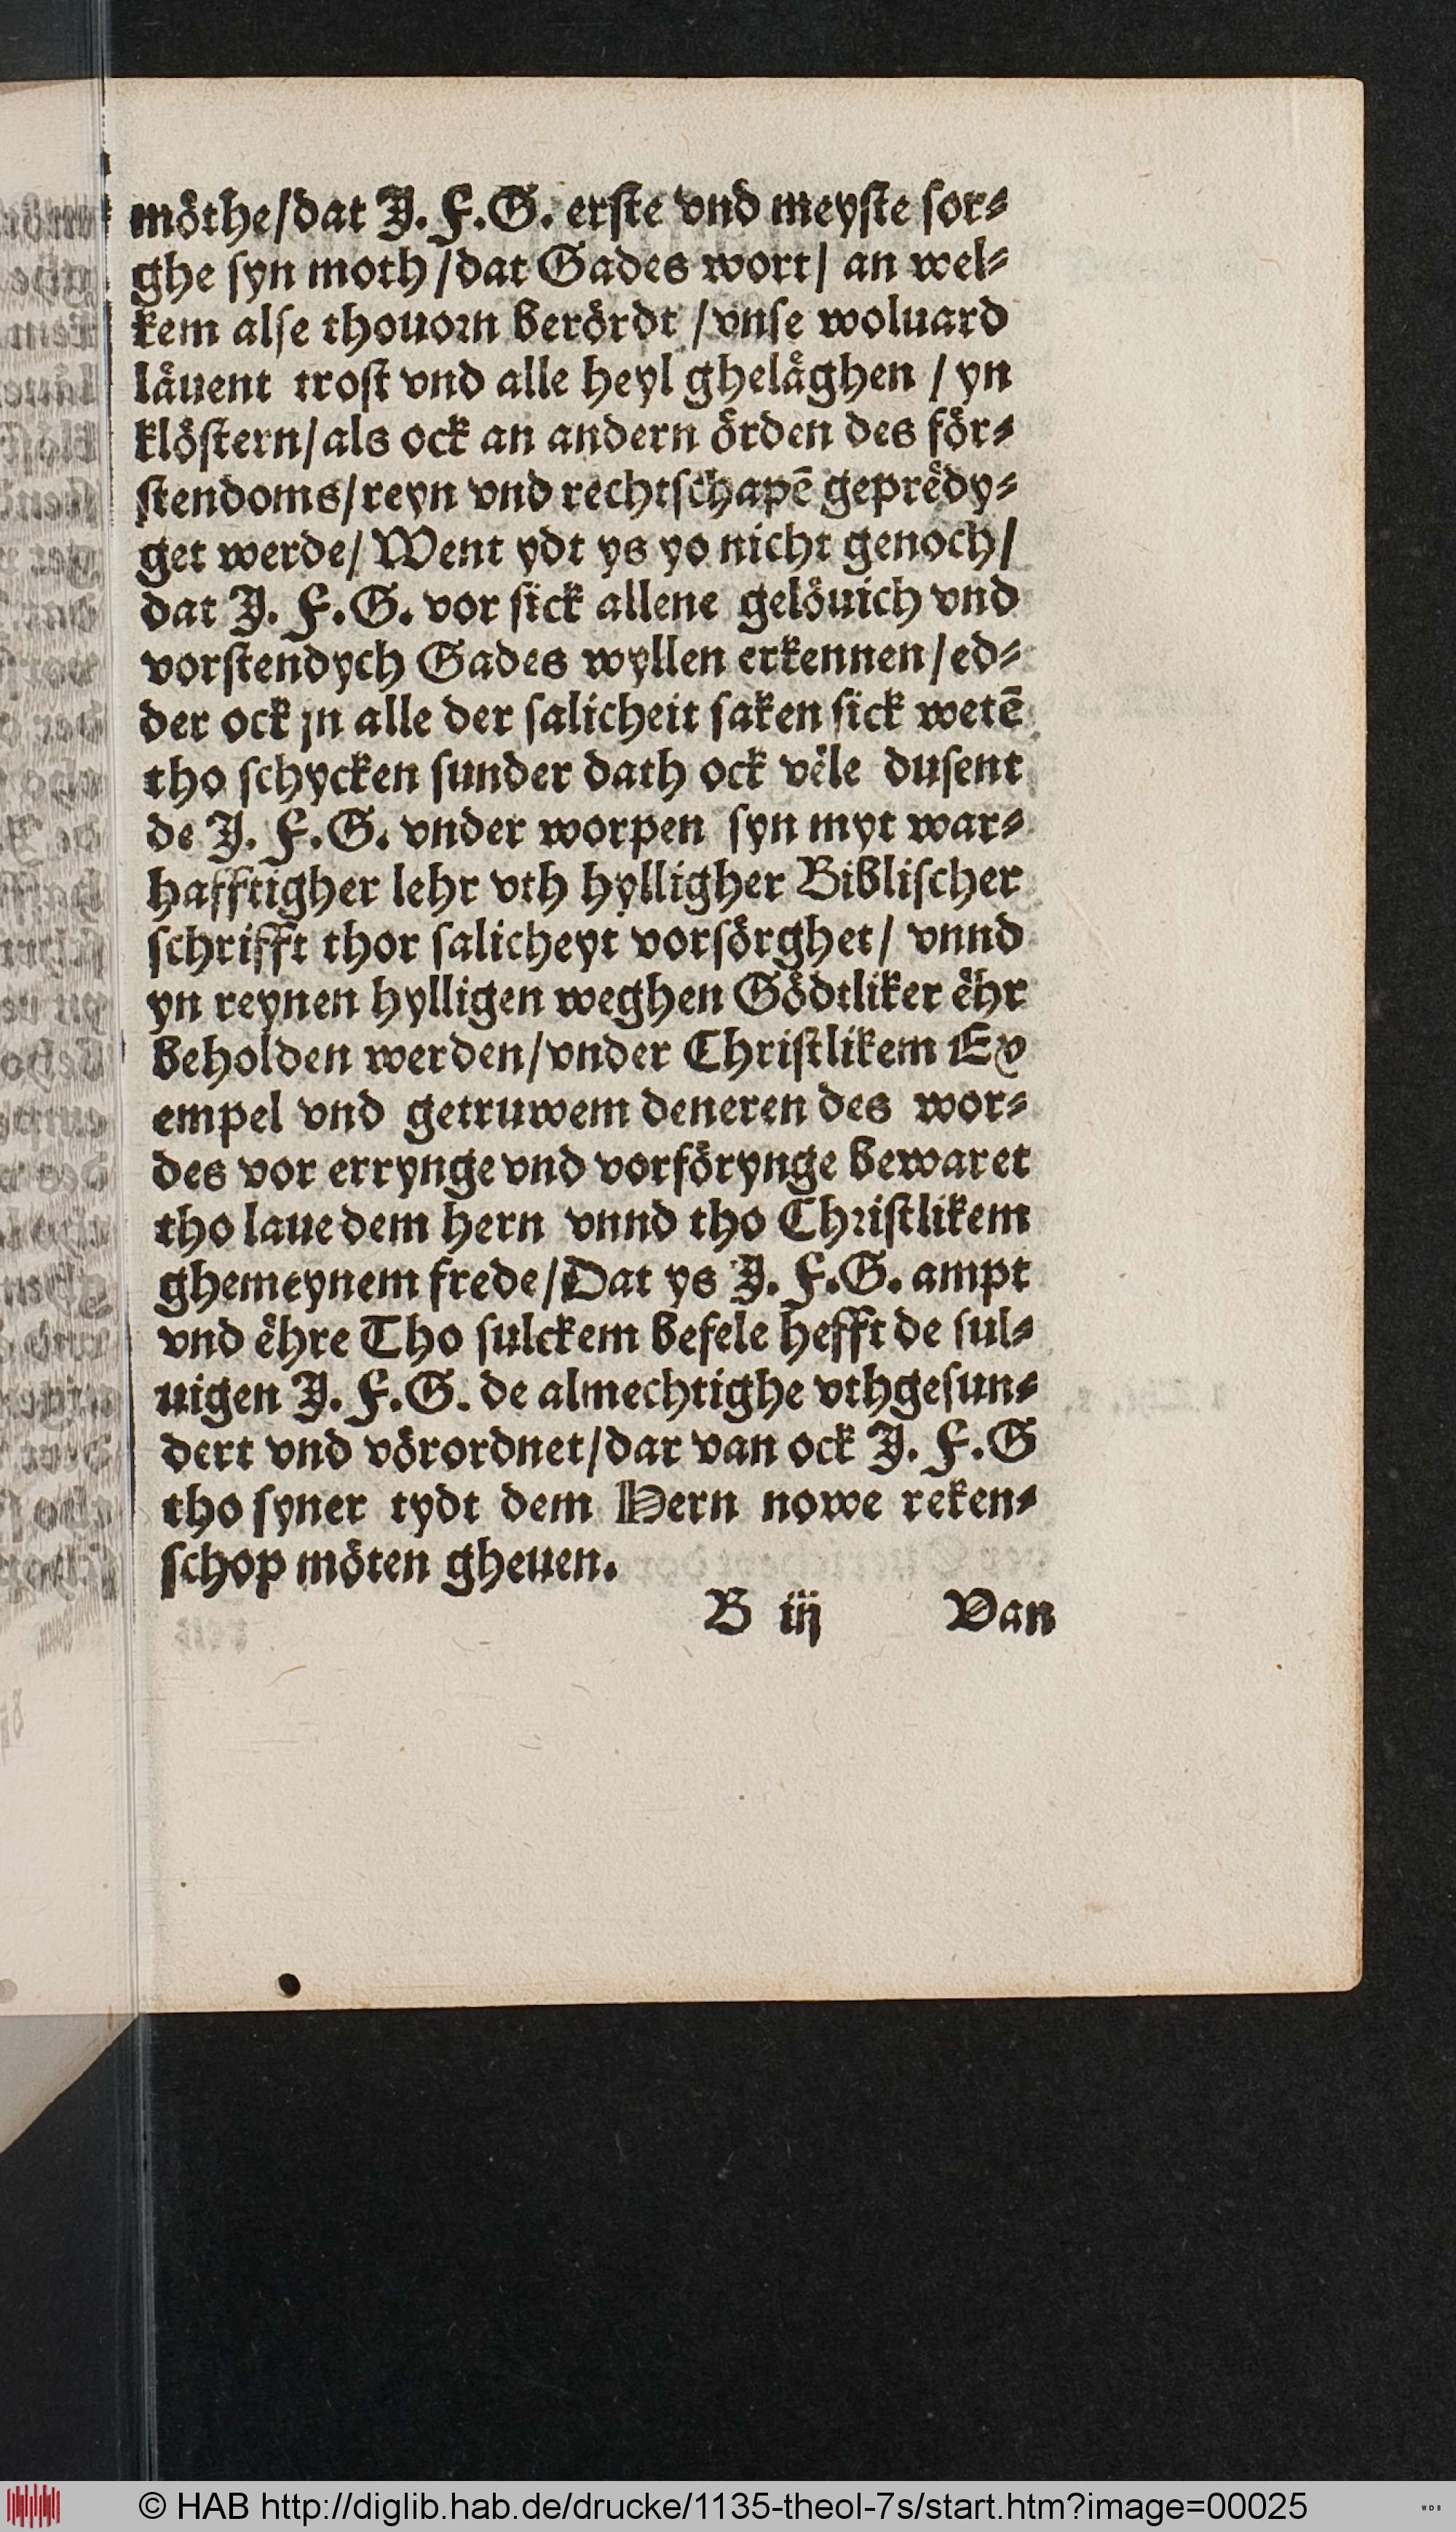 moͤthe/dat J. F.G. erſte vnd meyſte ſor⸗
ghe ſyn moth/dat Gades wort/ an wel⸗
kem alſe thouorn beroͤrdt /vnſe woluard
laͤuent troſt vnd alle heyl ghelaͤghen / yn
kloͤſtern/als ock an andern oͤrden des foͤr⸗
ſtendoms/reyn vnd rechtſchapē gepreͤdy⸗
get werde/ Went ydt ys yo nicht genoch/
dat J. F.G. vor ſick allene geloͤuich vnd
vorſtendych Gades wyllen erkennen/ed⸗
der ock jn alle der ſalicheit ſaken ſick wetē
tho ſchycken ſunder dath ock veͤle duſent
de J. F.G. vnder worpen ſyn myt war⸗
hafftigher lehr vth hylligher Bibliſcher
ſchrifft thor ſalicheyt vorſoͤrghet/ vnnd
yn reynen hylligen weghen Goͤdtliker eͤhr
beholden werden/vnder Chriſtlikem Ex
empel vnd getruwem deneren des wor⸗
des vor errynge vnd vorfoͤrynge bewaret
tho laue dem hern vnnd tho Chriſtlikem
ghemeynem frede/Dat ys J. F.G. ampt
vnd eͤhre Tho ſulckem befele hefft de ſul⸗
uigen J. F.G. de almechtighe vthgeſun⸗
dert vnd voͤrordnet/dar van ock J. F.G
tho ſyner tydt dem Hern nowe reken⸗
ſchop moͤten gheuen.
B iij Van
© HAB http://diglib.hab.de/drucke/1135-theol-7s/start.htm?image=00025